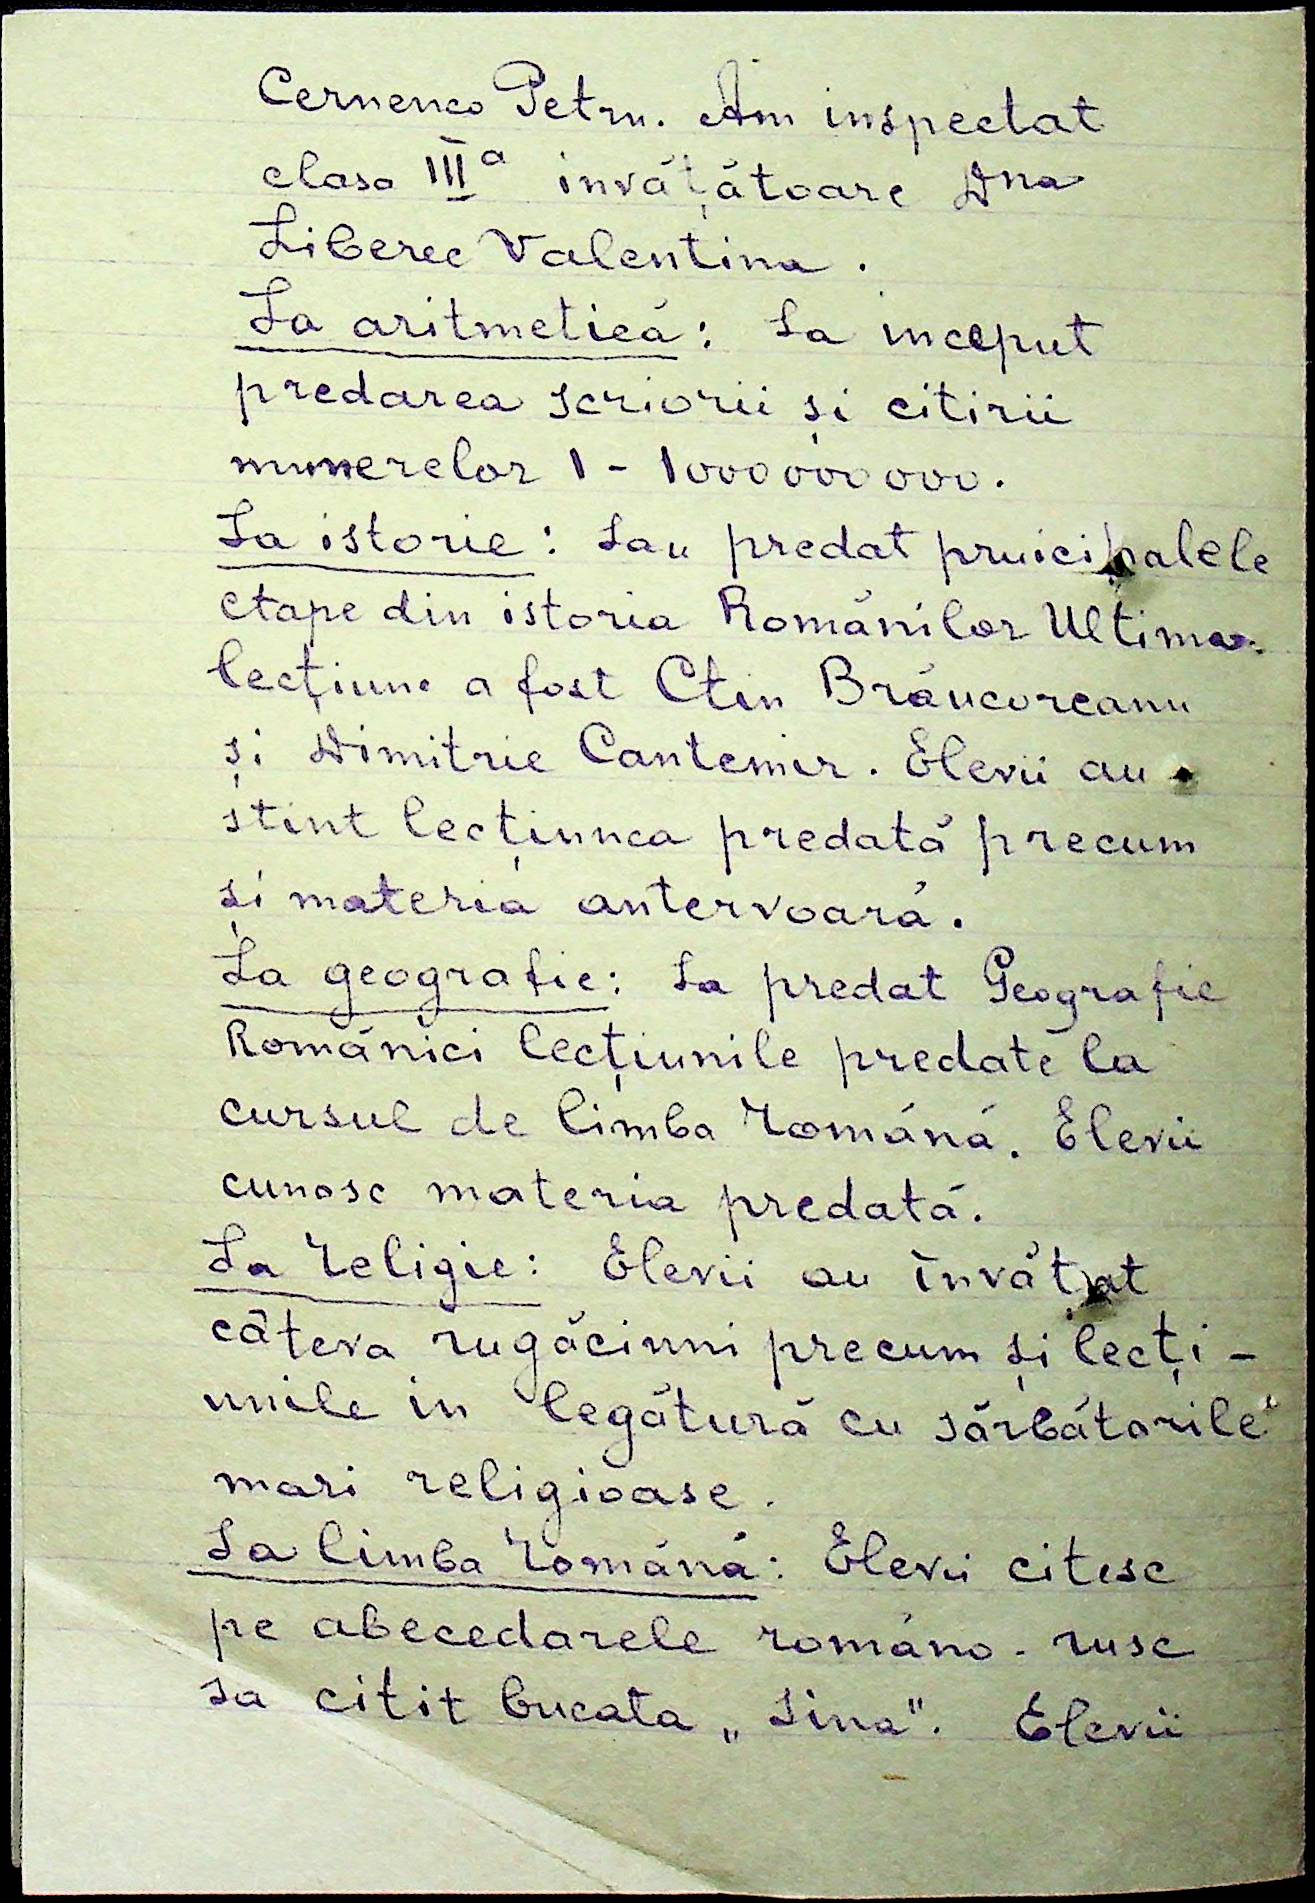 Cernenco Petru. Am inspectat
clasa III a învățătoare Dna
Liberec Valentina.
La aritmetică: Sa inceput
predarea scriorii și citirii
numerelor 1 - 1000000000.
La istorie: Sau predat principalele
etape din istoria Românilor Ultima
lecțiune a fost Ctin Brâncoreanu
și Dimitrie Cantemir. Elevii au
știut lecțiunea predată precum
și materia antervoară.
La geografie: Sa predat Geografie
Românici lecțiunile predate la
cursul de limba română. Elevii
cunosc materia predată.
La religie: Elevii au învățat
câteva rugăciuni precum și lecți-
unile in legătură cu sărbătorile
mari religioase.
La limba română: Elevii citesc
pe abecedarele româno-ruse
sa citit bucata „Lina". Elevii